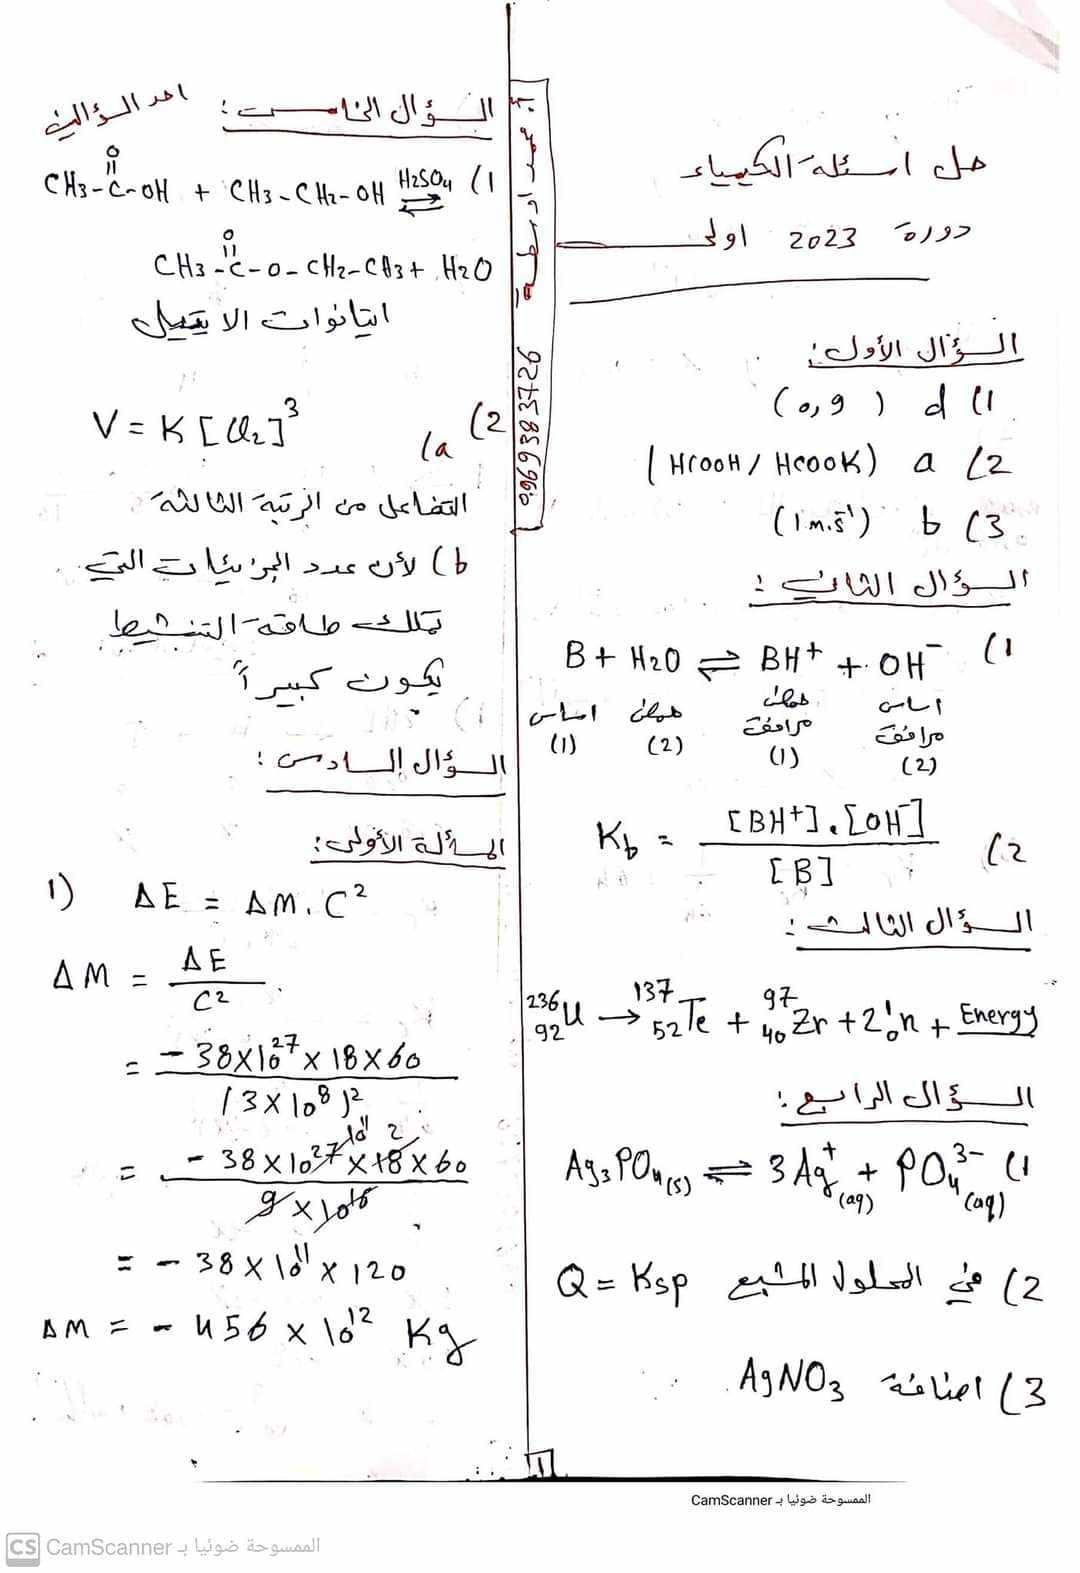 حل اسئلة الكيمياء
دورة 2023 اولى
السؤال الأول:
1) d (0,9)
2) a (HCOOH / HCOOK)
3) b (1 m.s⁻¹)
السؤال الثاني:
1) B + H2O ⇌ BH⁺ + OH⁻
اساس حمض حمض اساس
مرافق مرافق
(1) (2) (1) (2)
2) Kb = [BH⁺].[OH⁻] / [B]
السؤال الثالث:
²³⁶₉₂U → ¹³⁷₅₂Te + ⁹⁷₄₀Zr + 2¹₀n + Energy
السؤال الرابع:
1) Ag₃PO₄(s) ⇌ 3Ag⁺(aq) + PO₄³⁻(aq)
2) في المحلول المشبع Q = Ksp
3) اضافة AgNO3
0969638729
السؤال الخامس: احد السؤالين
1) CH3-C(=O)-OH + CH3-CH2-OH ⇌ (H2SO4)
CH3-C(=O)-O-CH2-CH3 + H2O
ايتانوات الايتيل
2) a) V = K [Cl2]³
التفاعل من الرتبة الثالثة
b) لأن عدد الجزيئات التي
تملك طاقة التنشيط
يكون كبيراً
السؤال السادس:
المسألة الأولى:
1) ΔE = ΔM . C²
ΔM = ΔE / C²
= -38×10²⁷ × 18×60 / (3×10⁸)²
= -38×10²⁷ × 18×60 / 9×10¹⁶
10¹¹ 2
= -38×10¹¹ × 120
ΔM = -456×10¹² Kg
1
الممسوحة ضوئيا بـ CamScanner
CS الممسوحة ضوئيا بـ CamScanner